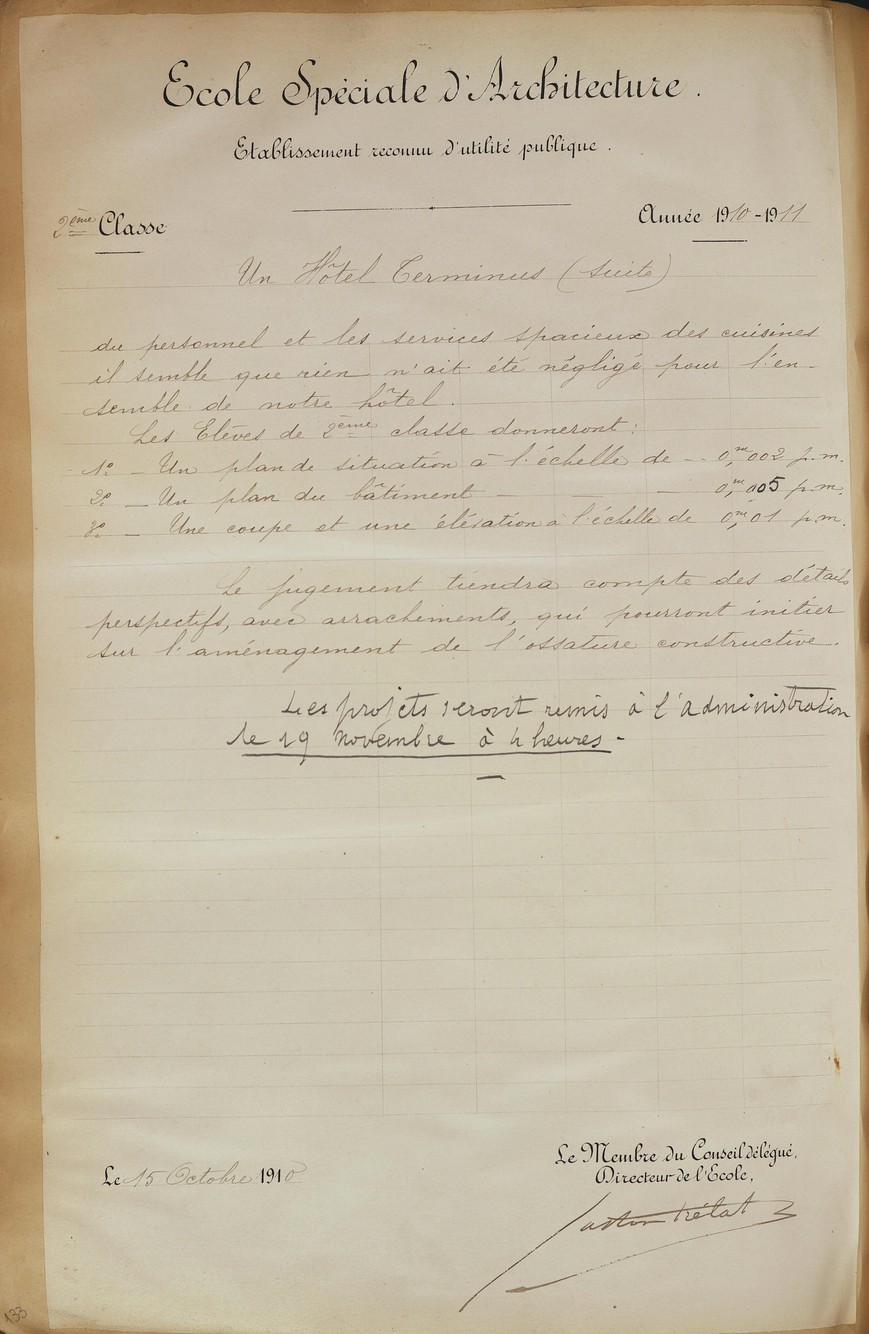 Ecole Spéciale d'Architecture.
Etablissement reconnu d'utilité publique.
2ème Classe
Année 1910-1911
Un Hôtel Terminus (suite)
du personnel et les services spacieux des cuisines
il semble que rien n'ait été négligé pour l'en-
semble de notre hôtel.
Les Elèves de 2ème classe donneront:
1º - Un plan de situation à l'échelle de -- 0,m002 p.m.
2º - Un plan du bâtiment - - - 0,m005 p.m.
3º - Une coupe et une élévation à l'échelle de 0,m01 p.m.
Le jugement tiendra compte des détails
perspectifs, avec arrachements, qui pourront initier
sur l'aménagement de l'ossature constructive.
Les projets seront remis à l'administration
le 19 novembre à 4 heures -
Le 15 Octobre 1910
Le Membre du Conseil délégué,
Directeur de l'Ecole,
Gaston Trélat
133